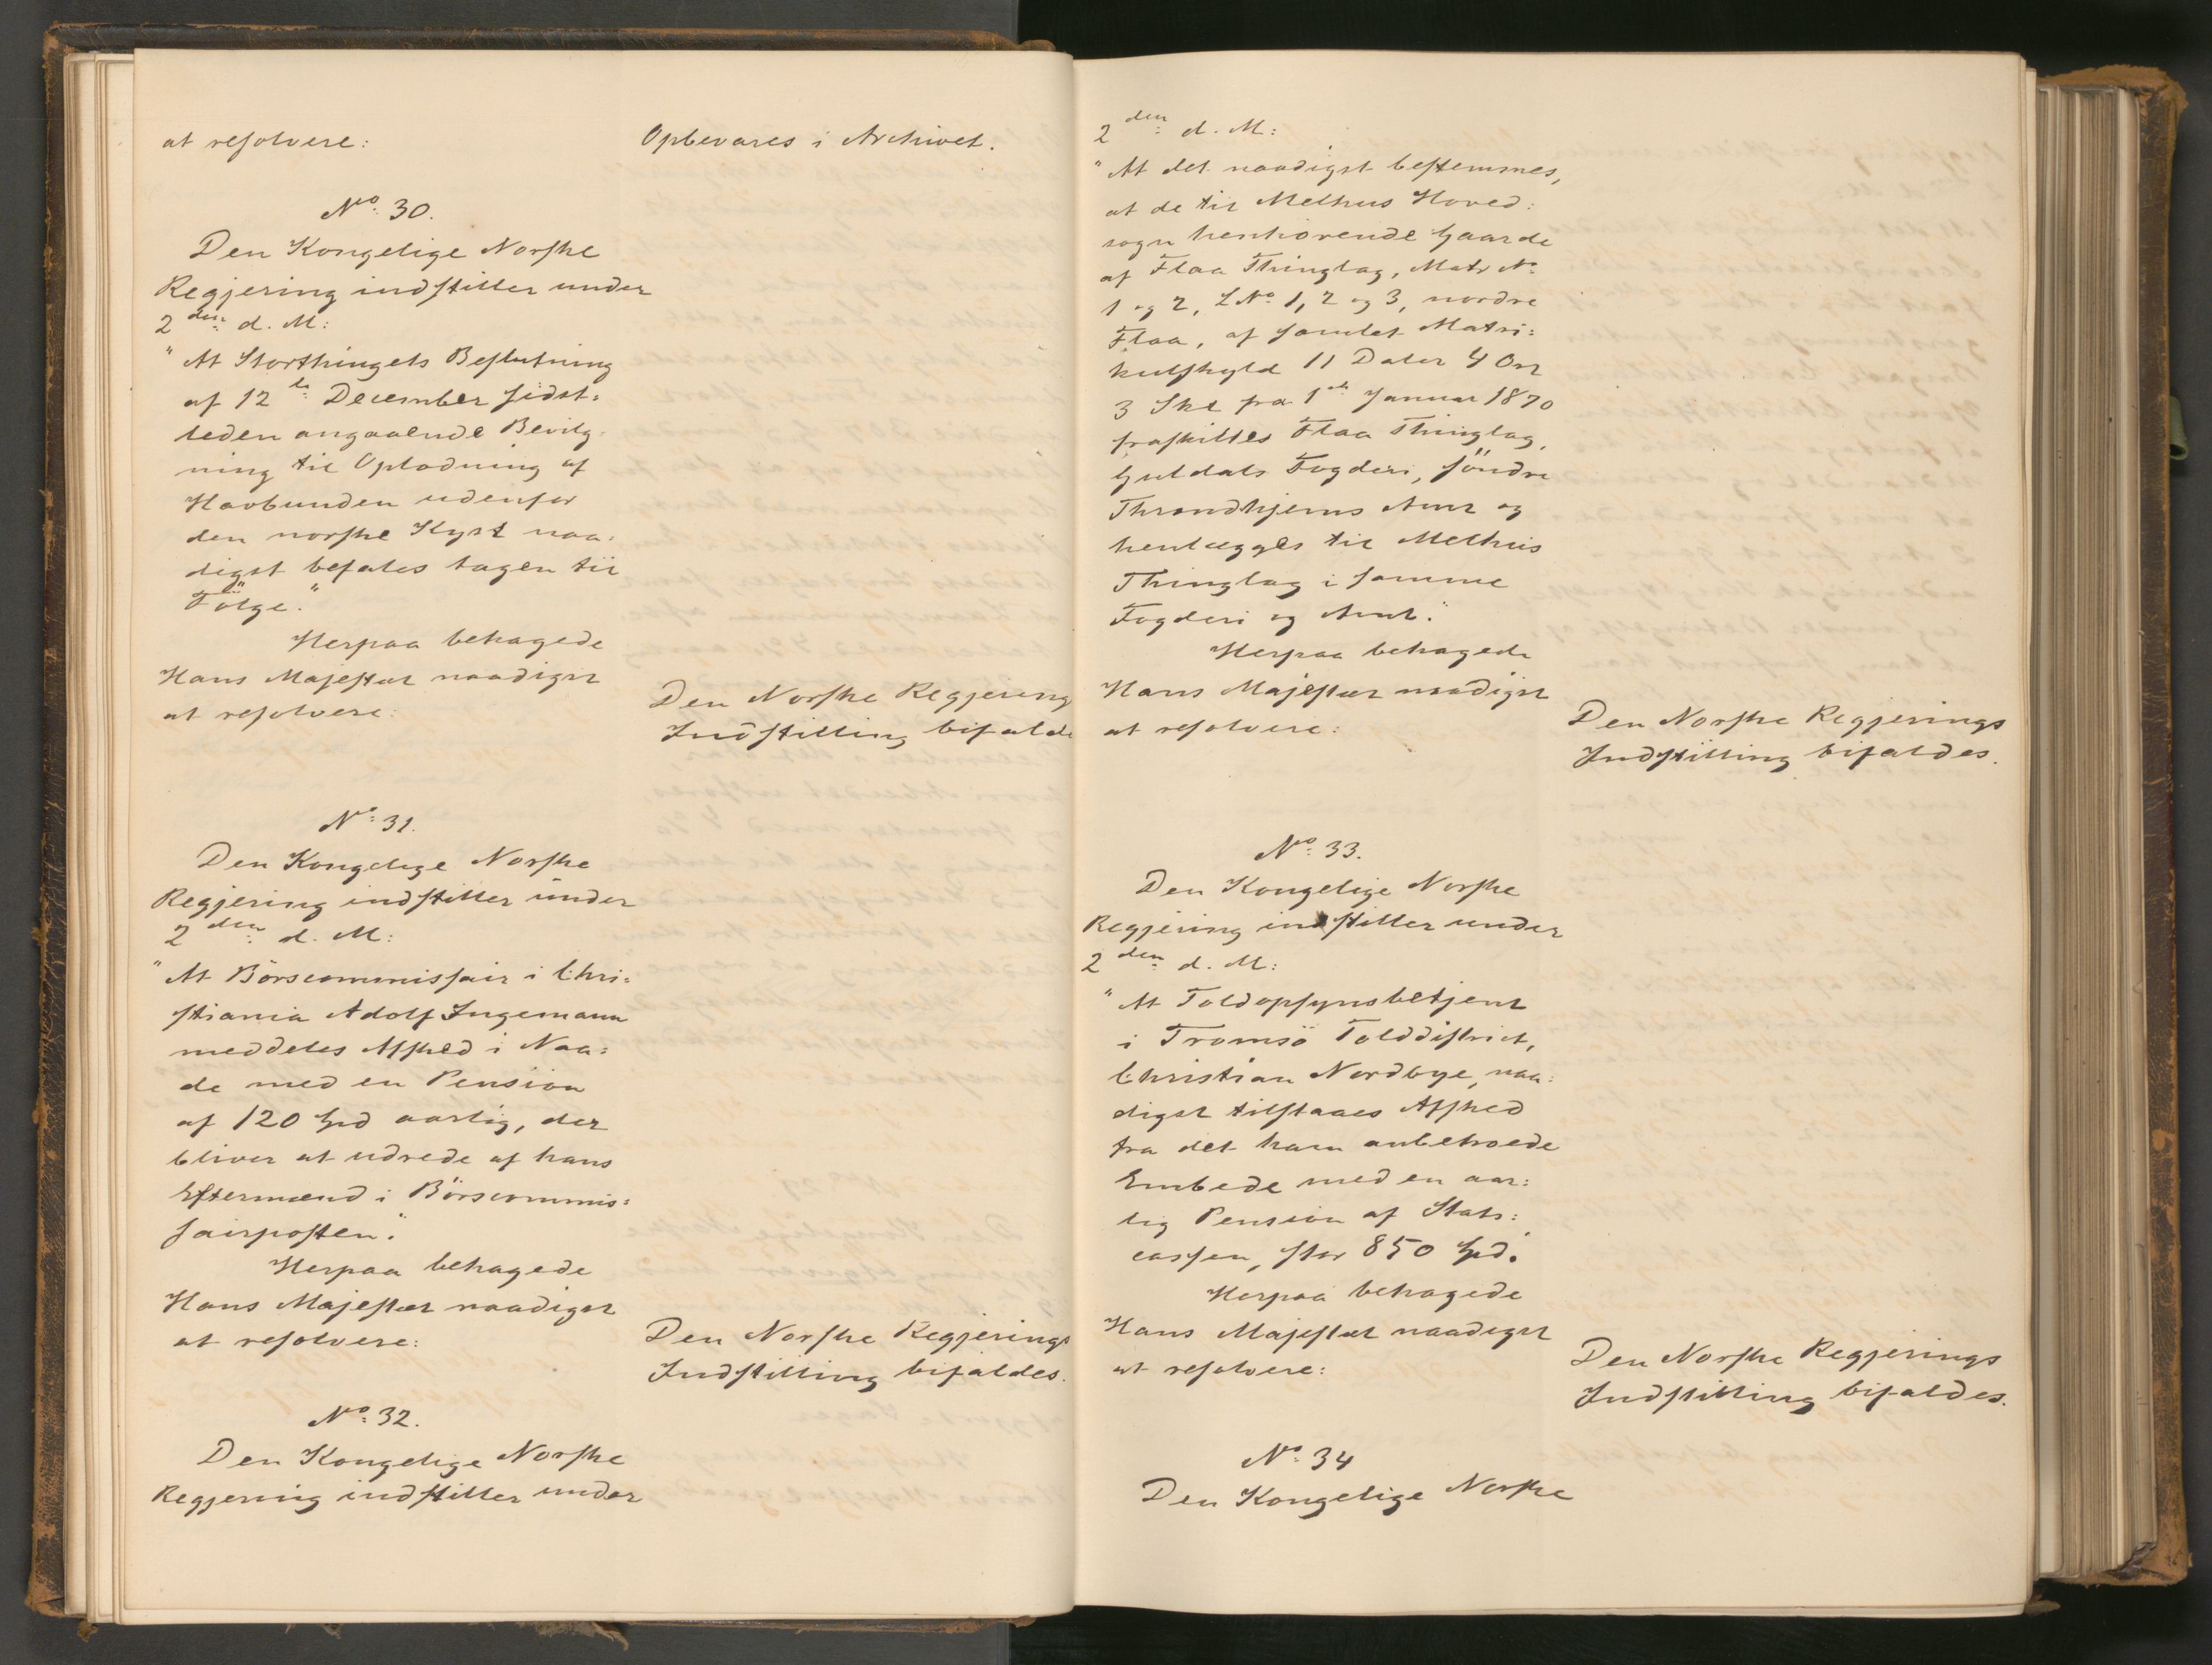 at resolvere:
Opbevares i Archivet.
No. 30.
Den Kongelige Norske
Regjering indstiller under
2den d. M:
"At Storthingets Beslutning
af 12te December sidst-
leden angaaende Bevilg-
ning til Oplodning af
Havbunden udenfor
den norske Kyst naa:
digst befales tagen til
Fölge."
Herpaa behagede
Hans Majestæt naadigst
at resolvere:
Den Norske Regjering
Indstilling bifalde
No. 31.
Den Kongelige Norske
Regjering indstiller under
2den d. M:
"At Börscommissair i Chri:
stiania Adolf Ingemann
meddeles Afsked i Naa:
de med en Pension
af 120 Spd aarlig, der
bliver at udrede af hans
Eftermænd i Börscommis:
sairposten."
Herpaa behagede
Hans Majestæt naadigst
at resolvere:
Den Norske Regjerings
Indstilling bifaldes.
No. 32.
Den Kongelige Norske
Regjering indstiller under
2den d. M:
"At det naadigst bestemmes,
at de til Melhus Hoved:
sogn henhörende Gaarde
af Flaa Thinglag, Matr No.
1 og 2, LNo. 1, 2 og 3, nordre
Flaa, af samlet Matri:
kulskyld 11 Daler 4 Ort
3 Skl fra 1ste Januar 1870
fraskilles Flaa Thinglag,
Guldals Fogderi, söndre
Throndhjems Amt og
henlægges til Melhus
Thinglag i samme
Fogderi og Amt."
Herpaa behagede
Hans Majestæt naadigst
at resolvere:
Den Norske Regjerings
Indstilling bifaldes.
No. 33.
Den Kongelige Norske
Regjering indstiller under
2den d. M:
"At Toldopsynsbetjent
i Tromsö Tolddistrict,
Christian Nordbye, naa:
digst tilstaaes Afsked
fra det ham anbetroede
Embede med en aar:
lig Pension af Stats:
cassen, stor 850 Spd."
Herpaa behagede
Hans Majestæt naadigst
at resolvere:
Den Norske Regjerings
Indstilling bifaldes.
No. 34
Den Kongelige Norske